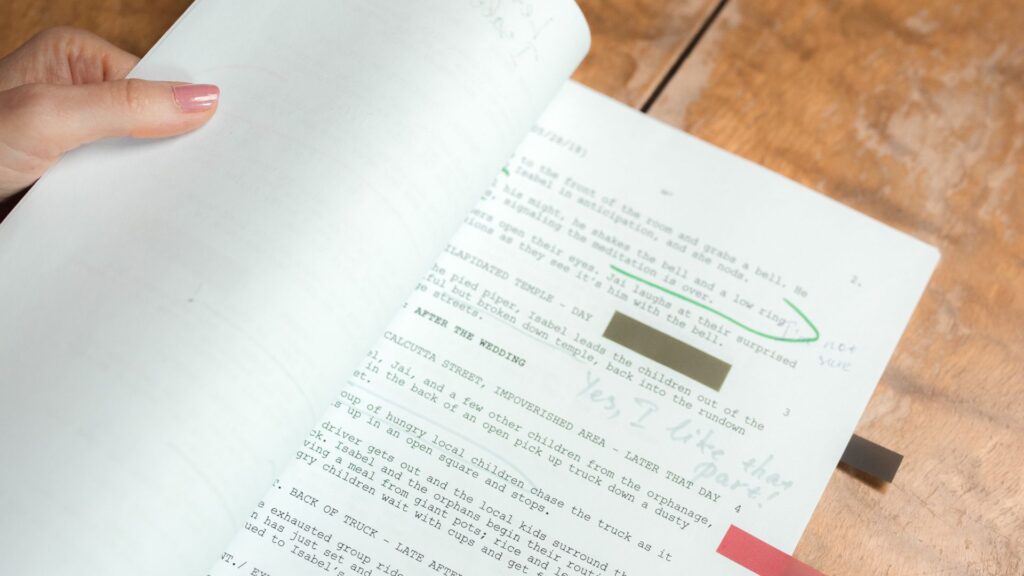 /28/18)
2.
to the front of the room and grabs a bell. He
Isabel in anticipation, and she nods.
his might, he shakes the bell and a low ring
signaling the meditation is over.
open their eyes. Jai laughs at their surprised
as they see it's him with the bell.
not
sure
TEMPLE - DAY
3
pied piper, Isabel leads the children out of the
but broken down temple, back into the rundown
streets.
Yes, I like that
part!
AFTER THE WEDDING
CALCUTTA STREET, IMPOVERISHED AREA - LATER THAT DAY
4
Jai, and a few other children from the orphanage,
in the back of an open pick up truck down a dusty
of hungry local children chase the truck as it
up in an open square and stops.
driver gets out and the local kids surround the
Isabel and the orphans begin their
a meal from giant pots; rice and
children wait with cups and get
BACK OF TRUCK - LATE
exhausted group
has just set and
to Isabel's